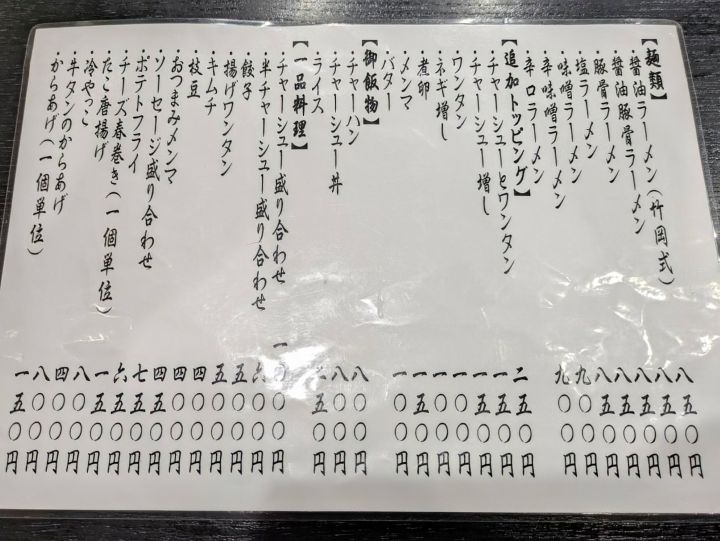 【麺類】
・醤油ラーメン(竹岡式) 八五〇円
・醤油豚骨ラーメン 八五〇円
・豚骨ラーメン 八五〇円
・塩ラーメン 八五〇円
・味噌ラーメン 八五〇円
・辛味噌ラーメン 九〇〇円
・辛口ラーメン 九〇〇円
【追加トッピング】
・チャーシューとワンタン 二五〇円
・チャーシュー増し 一五〇円
・ワンタン 一五〇円
・ネギ増し 一〇〇円
・煮卵 一〇〇円
・メンマ 一五〇円
・バター 一〇〇円
【御飯物】
・チャーハン 八〇〇円
・チャーシュー丼 八〇〇円
・ライス 二五〇円
【一品料理】
・チャーシュー盛り合わせ
・半チャーシュー盛り合わせ 六〇〇円
・餃子 五〇〇円
・揚げワンタン 五〇〇円
・キムチ 四〇〇円
・枝豆 四〇〇円
・おつまみメンマ 四五〇円
・ソーセージ盛り合わせ 七五〇円
・ポテトフライ 六五〇円
・チーズ春巻き(一個単位) 一五〇円
・たこ唐揚げ 八〇〇円
・冷やっこ 四〇〇円
・牛タンのからあげ 八〇〇円
・からあげ(一個単位) 一五〇円